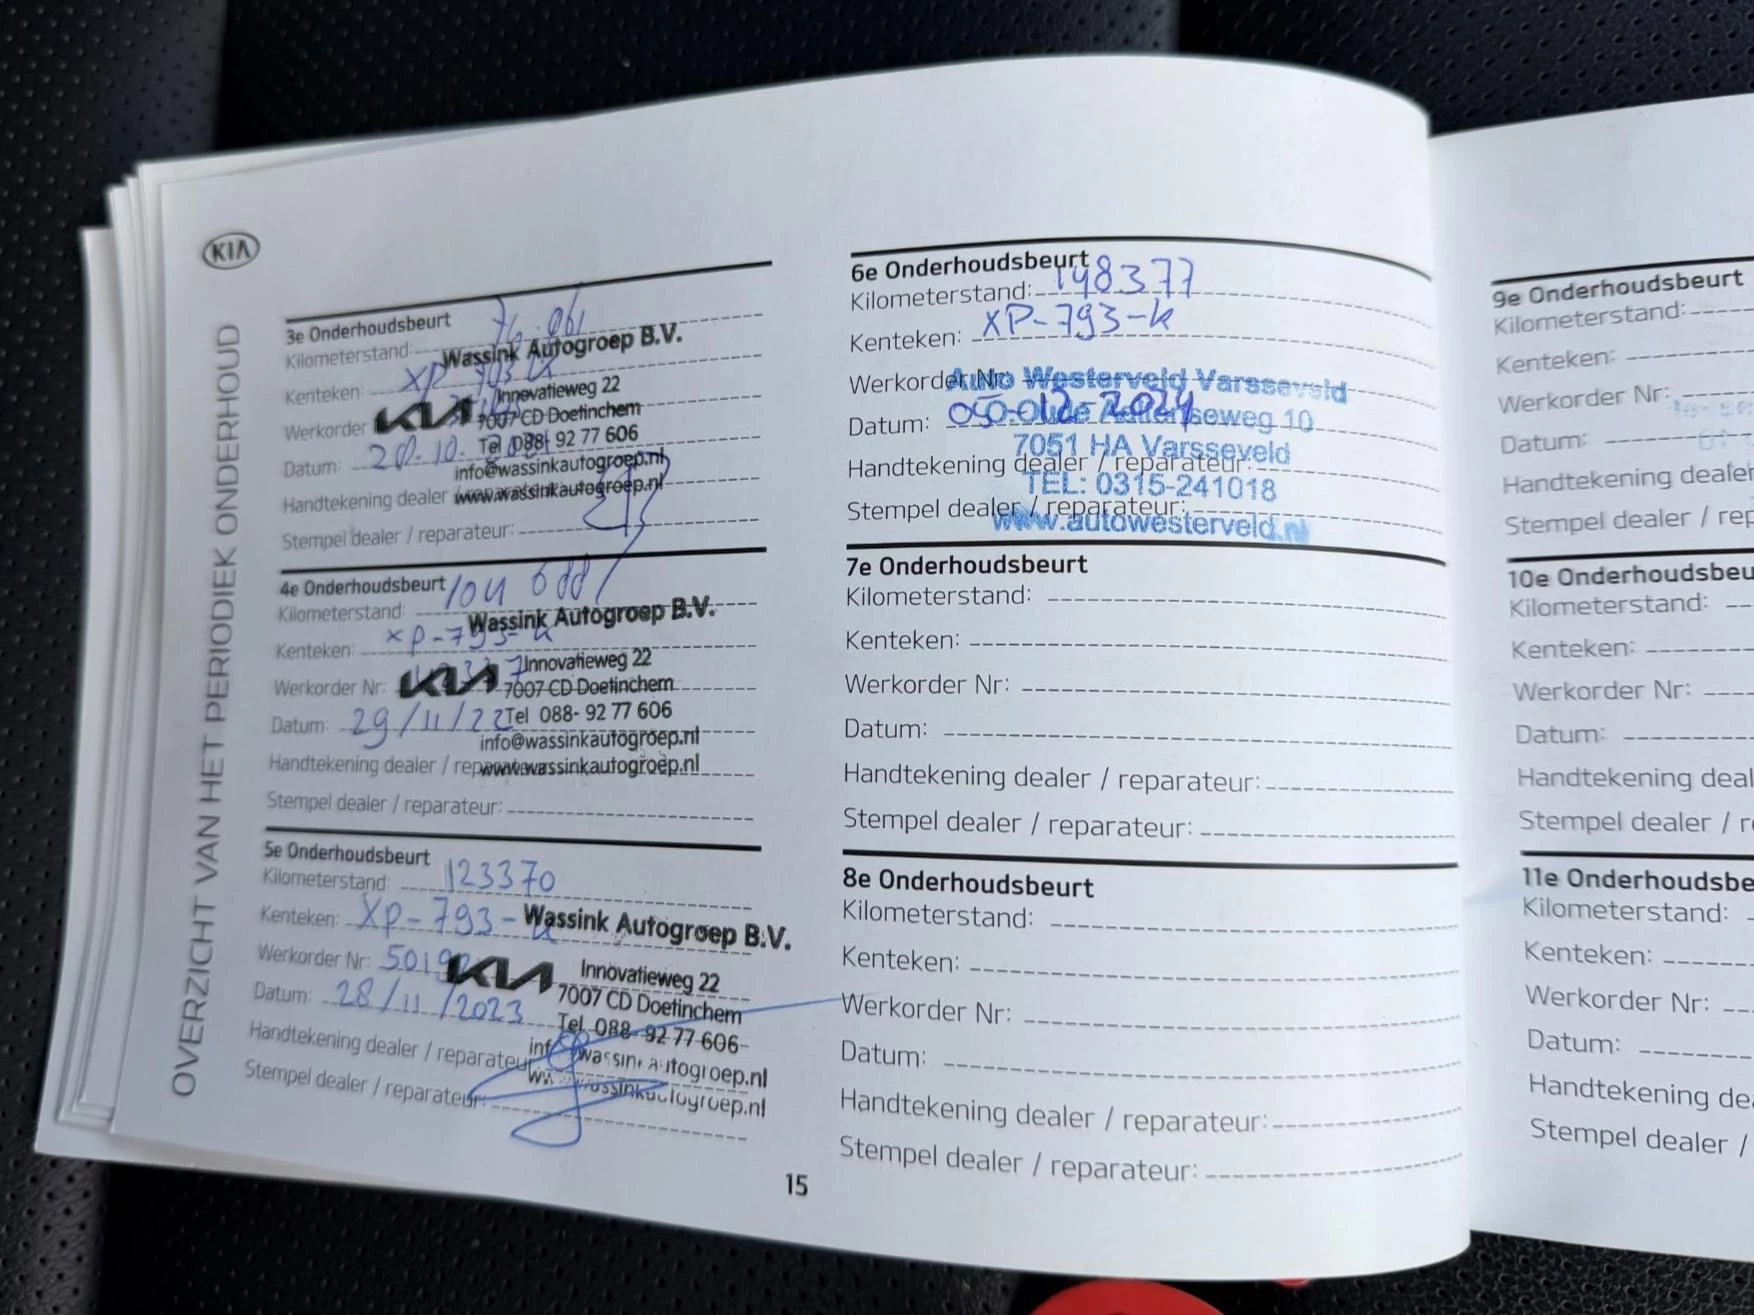 KIA
OVERZICHT VAN HET PERIODIEK ONDERHOUD
3e Onderhoudsbeurt
Kilometerstand: 76.061
Wassink Autogroep B.V.
Kenteken: XP 793 K
Innovatieweg 22
Werkorder KIA 7007 CD Doetinchem
Datum: 20.10. Tel 088- 92 77 606
info@wassinkautogroep.nl
Handtekening dealer www.wassinkautogroep.nl
Stempel dealer / reparateur:
4e Onderhoudsbeurt
Kilometerstand: 104
Wassink Autogroep B.V.
Kenteken: XP-793-K
Innovatieweg 22
Werkorder Nr: KIA 7007 CD Doetinchem
Datum: 29/11/22 Tel 088- 92 77 606
info@wassinkautogroep.nl
Handtekening dealer / www.wassinkautogroep.nl
Stempel dealer / reparateur:
5e Onderhoudsbeurt
Kilometerstand: 123370
Kenteken: XP-793-K Wassink Autogroep B.V.
Werkorder Nr: KIA Innovatieweg 22
7007 CD Doetinchem
Datum: 28/11/2023 Tel 088- 92 77 606
Handtekening dealer / reparateur: info@wassinkautogroep.nl
www.wassinkautogroep.nl
Stempel dealer / reparateur:
6e Onderhoudsbeurt
Kilometerstand: 148377
Kenteken: XP-793-K
Werkorder Nr: Auto Westerveld Varsseveld
Datum: 12-2024 Oude Aaltenseweg 10
7051 HA Varsseveld
Handtekening dealer / reparateur:
TEL: 0315-241018
Stempel dealer / reparateur:
www.autowesterveld.nl
7e Onderhoudsbeurt
Kilometerstand:
Kenteken:
Werkorder Nr:
Datum:
Handtekening dealer / reparateur:
Stempel dealer / reparateur:
8e Onderhoudsbeurt
Kilometerstand:
Kenteken:
Werkorder Nr:
Datum:
Handtekening dealer / reparateur:
Stempel dealer / reparateur:
15
9e Onderhoudsbeurt
Kilometerstand:
Kenteken:
Werkorder Nr:
Datum:
Handtekening dealer
Stempel dealer / rep
10e Onderhoudsbeu
Kilometerstand:
Kenteken:
Werkorder Nr:
Datum:
Handtekening deal
Stempel dealer / r
11e Onderhoudsbe
Kilometerstand:
Kenteken:
Werkorder Nr:
Datum:
Handtekening de
Stempel dealer /